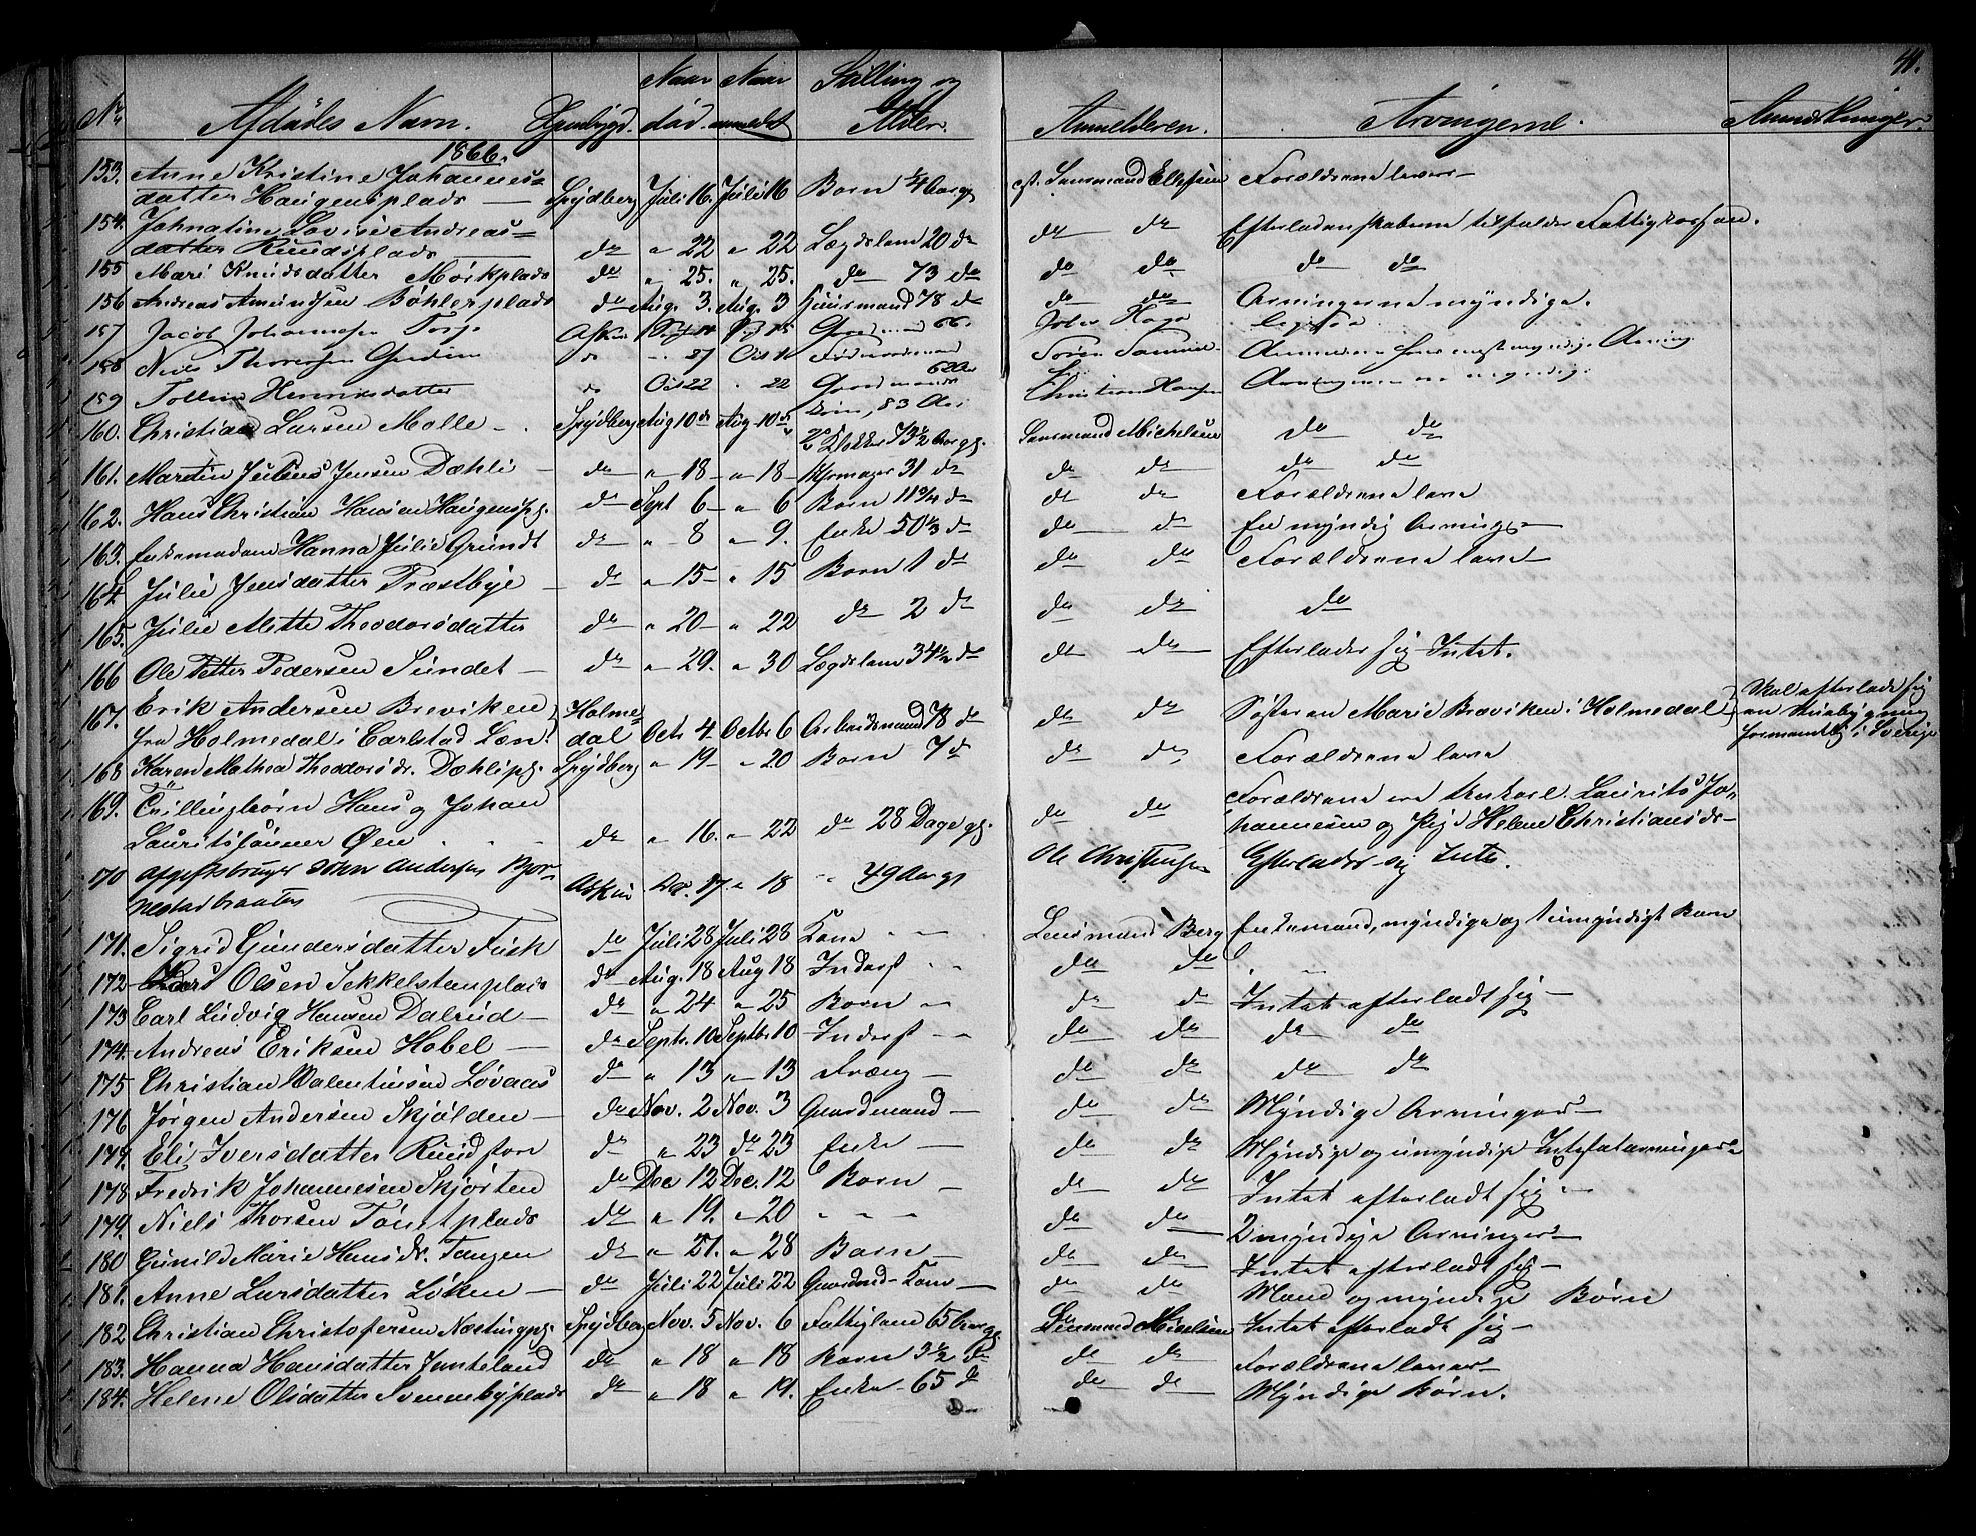 41.
No. Afdødes Nam. Thinglaugd. Naar død. Naar anmeldt Stilling og Alder. Anmelderen. Arvingerne. Anmærkninger.
1866.
153. Anne Kristine Johannes=
datter Haugensplads — Spydberg Juli 16. Juli 16 Barn ¼ Aar gl. cst. Lensmand Ellefsen Forældrene lever —
154. Johnatine Lovise Andreas=
datter Ruudsplads do " 22 " 22 Lægdslem 20 do do do Efterladenskaberne tilfalder Fattigkassen.
155 Mari Knudsdatter Mörkplads do " 25. " 25. do 73 do do do do do
156 Andreas Amundsen Böhlerplads do Aug. 3. Aug. 3 Huusmand 78 do do do Arvingerne myndige.
157 Jacob Johannesen Torp Askim Gaardmand 66
158 Niels Thoresen do " 27 Oct
159 Henriksdatter do Oct 22 " 22 Gaardmands
Kone, 83 Aar Christian Hansen Arvingerne ere myndige
160. Christian Larsen Molle — Spydberg Aug 10de Aug 10de Klokker 73½ Aar gl. Lensmand Michelsen do do
161. Martin Julius Jensen Dæhli — do " 18 — " 18 — 31 do do do do do
162. Hans Christian Hansen Haugenspl. do Sept 6 — " 6 Barn 11¾ do do do Forældrene leve
163. Enkemadam Hanna Julie Grundt do " 8 " 9. Enke 50⅓ do do do En myndig Arving —
164 Julie Jensdatter Præstbye — do " 15 — " 15 Barn 1 do do do Forældrene leve —
165. Julie Mette Theodorsdatter do " 20 — " 22 do 2 do do do do
166 Ole Petter Pedersen Sundet — do " 29. " 30 Lægdslem 34½ do do do Efterlader sig Intet.
167. Erik Andersen Breviken
fra Holmedal i Carlstad Læn. Holme=
dal Octr 4 Octbr 6 Arbeidsmand 78 do do do Søsteren Marie Breviken i Holmedal Skal efterlade sig
en Huusbygning
formentlig i Sverige
168 Karen Mathea Theodorsdr. Dæhlipl. Spydberg " 19 — " 20 Barn 7 do do do Forældrene leve
169. Tvillingbørn Hans og Johan
Lauritssønner Øen do " 16. " 22 do 28 Dage gl. do do Forældrene ere Unkarl Laurits Jo=
hannesen og Pige Helene Christiansdr —
170 Afgiftsbruger John Andersen Bjør=
nestadbraaten Askim Dec. 17 " 18 " 49 Aar gl Ole Christensen Efterlader sig Intet.
171. Sigrid Gundersdatter Fusk do Juli 28 Juli 28 Kone — — Lensmand Berg Enkemand, myndige og 1 umyndigt Barn
172 Lars Olsen Sekkelstenplads do Aug. 18 Aug 18 Inderst — — do do " —
173 Carl Ludvig Hansen Dalrud — do " 24 " 25 Barn — do do Intet efterladt sig —
174. Andreas Eriksen Hobel — do Septr. 10 Septbr 10 Inderst — — do do do do
175 Christian Valentinsen Løvaas do " 13 " 13 Dreng — do do do do
176 Jørgen Andersen Skjølden — do Nov. 2 Nov. 3 Gaardmand — do do Myndige Arvinger —
177. Eli Iversdatter Ruud store do " 23 do 23 Enke — do do Myndige og umyndige Intestatarvinger —
178 Fredrik Johannesen Skjørten do Dec 12 Dec. 12 Barn — do do Intet efterladt sig —
179. Niels Thorsen Tomtplads do " 19. " 20 " — — do do 2 myndige Arvinger —
180 Gunild Marie Hansdr. Tangen do " 21. " 28 Barn — do do Intet efterladt sig —
181. Anne Larsdatter Løken — do Juli 22 Juli 22 Gaardmd — Kone — do do Mand og myndige Børn
182 Christian Christofersen Næstingpl. Spydberg Nov. 5 Nov. 6 Fattiglem 65 Aar gl Lensmand Michelsen Intet efterladt sig —
183. Hanna Hansdatter Jimteland do " 18 " 18 Barn 3½ do do do Forældrene lever —
184. Helene Olsdatter Svennebyplads do " 18 " 19. Enke 65 do do do Myndige Børn.